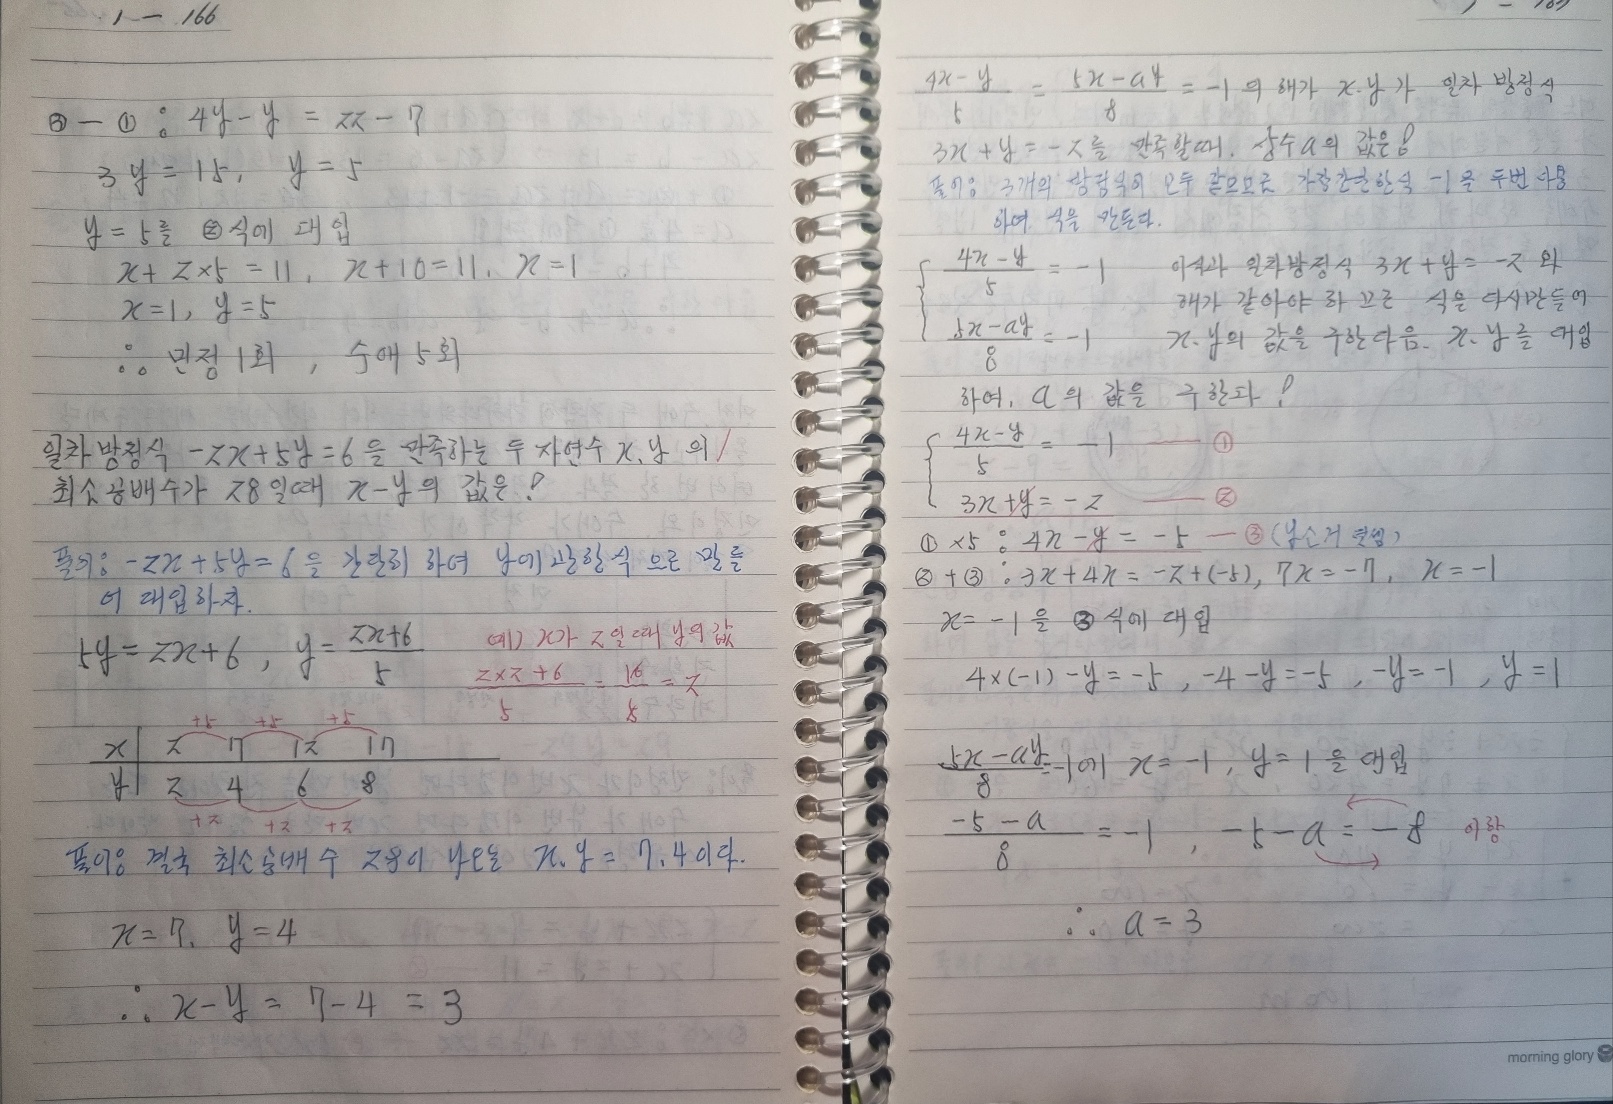 1 - 166
③ - ① : 4y - y = 22 - 7
3y = 15, y = 5
y = 5를 ②식에 대입
x + 2×5 = 11, x + 10 = 11, x = 1
x = 1, y = 5
∴ 민정 1회, 수애 5회
일차방정식 -2x + 5y = 6을 만족하는 두 자연수 x, y의
최소공배수가 28일때 x - y의 값은?
풀이: -2x + 5y = 6을 간단히 하여 y에 관한식 으로 만들
어 대입하자.
5y = 2x + 6, y = (2x+6)/5
예) x가 2일때 y의 값
(2×2+6)/5 = 10/5 = 2
+5 +5 +5
x | 2 7 12 17
y | 2 4 6 8
+2 +2 +2
풀이: 결국 최소공배수 28이 나오는 x, y = 7, 4이다.
x = 7, y = 4
∴ x - y = 7 - 4 = 3
(4x-y)/5 = (5x-ay)/8 = -1의 해가 x, y가 일차 방정식
3x + y = -2를 만족할때, 상수 a의 값은?
풀이: 3개의 방정식이 모두 같으므로 가장간단한식 -1을 두번 사용
하여 식을 만든다.
(4x-y)/5 = -1 이식과 일차방정식 3x + y = -2 와
해가 같아야 하므로 식을 다시만들어
(5x-ay)/8 = -1 x, y의 값을 구한다음, x, y를 대입
하여, a의 값을 구한다!
(4x-y)/5 = -1 ①
3x + y = -2 ②
① ×5 : 4x - y = -5 ③ (y소거 연습)
② + ③ : 3x + 4x = -2 + (-5), 7x = -7, x = -1
x = -1을 ③식에 대입
4×(-1) - y = -5, -4 - y = -5, -y = -1, y = 1
(5x-ay)/8 = -1에 x = -1, y = 1을 대입
(-5-a)/8 = -1, -5 - a = -8 이항
∴ a = 3
morning glory